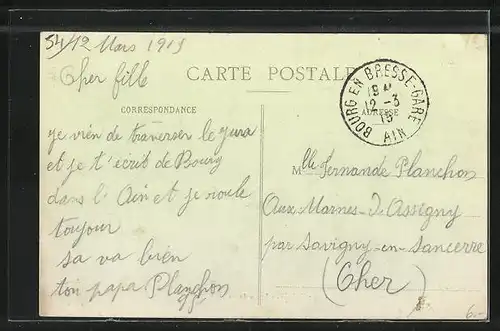 54/12 Mars 1915
Cher fille
CARTE POSTALE
CORRESPONDANCE
ADRESSE
BOURG EN BRESSE-GARE
12-3
15
AIN
je vien de traverser le jura
et je t'écrit de Bourg
dans l'Ain et je roule
toujour
sa va bien
ton papa Planchon
Mlle Fernande Planchon
Aux Marnes-D'Assigny
par Savigny-en-Sancerre
(Cher)
6.-